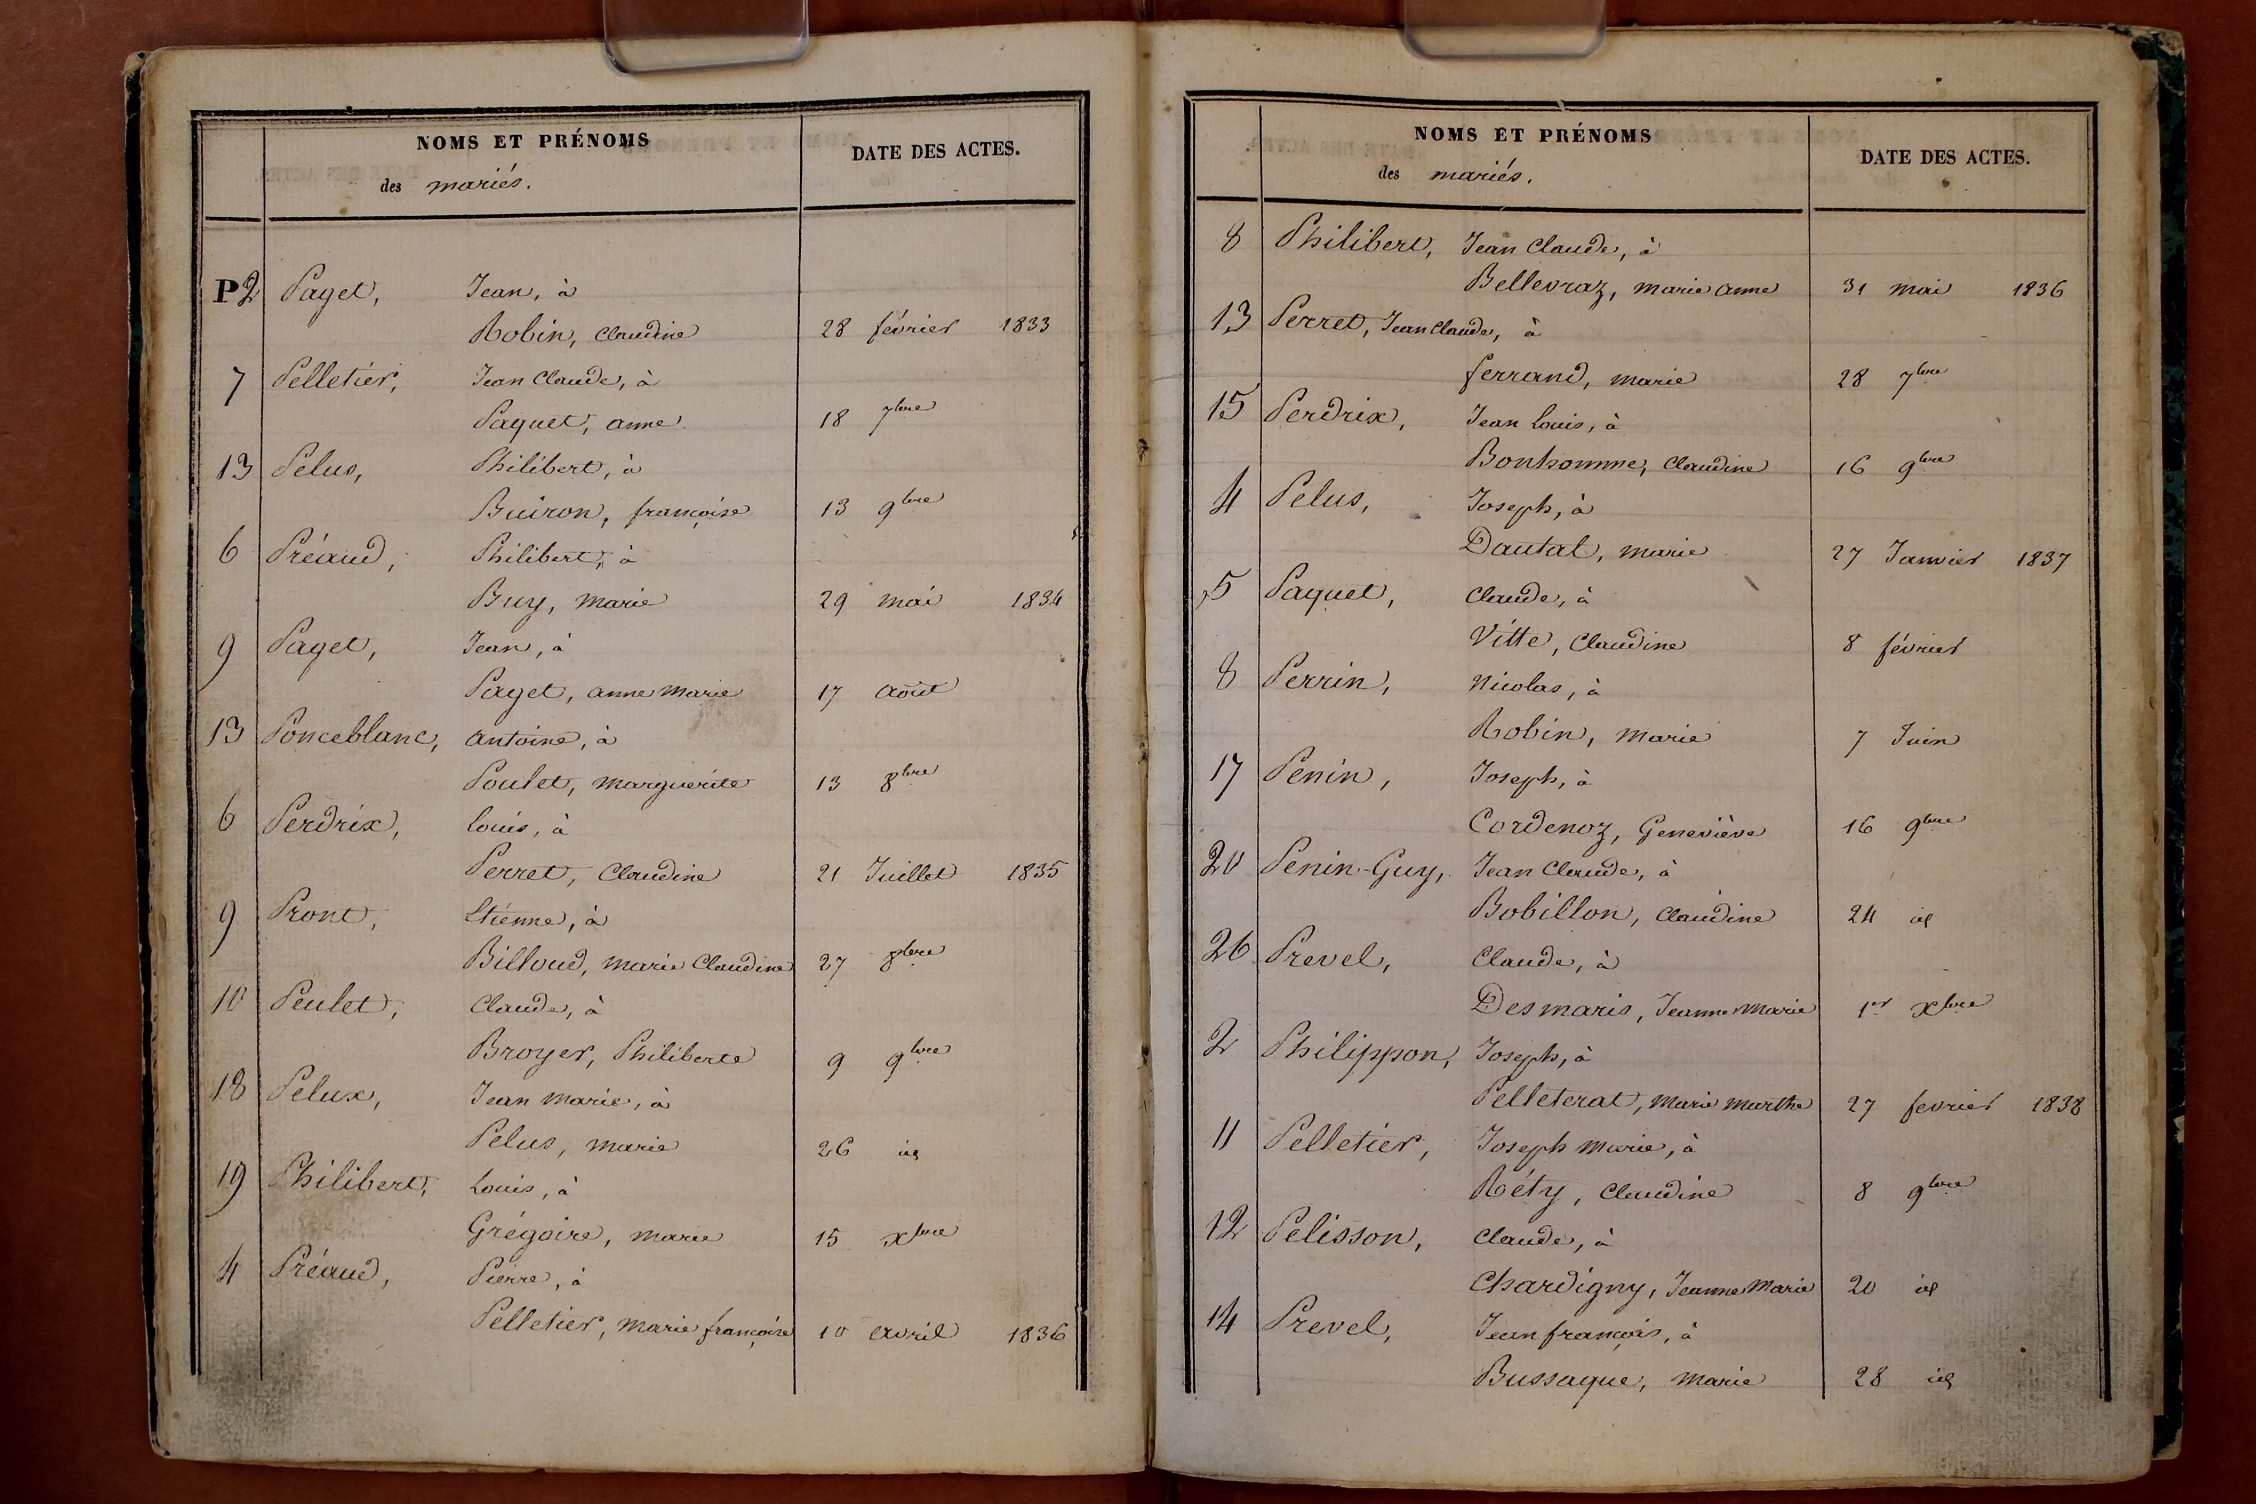 NOMS ET PRÉNOMS
des mariés.
DATE DES ACTES.
P 2 Paget, Jean, à
Robin, Claudine 28 février 1833
7 Pelletier, Jean Claude, à
Paquet, anne 18 7bre
13 Pelus, Philibert, à
Buiron, françoise 13 9bre
6 Préaud, Philibert, à
Buy, marie 29 mai 1834
9 Paget, Jean, à
Paget, anne marie 17 août
13 Ponceblanc, antoine, à
Poulet, marguerite 13 8bre
6 Perdrix, louis, à
Perret, Claudine 21 Juillet 1835
9 Pront, Etienne, à
Billoud, marie Claudine 27 8bre
10 Peulet, Claude, à
Broyer, Philiberte 9 9bre
18 Pelux, Jean marie, à
Pelus, marie 26 id
19 Philibert, Louis, à
Grégoire, marie 15 xbre
4 Préaud, Pierre, à
Pelletier, marie françoise 10 avril 1836
NOMS ET PRÉNOMS
des mariés.
DATE DES ACTES.
8 Philibert, Jean Claude, à
Bellevraz, marie anne 31 mai 1836
13 Perret, Jean Claude, à
ferrand, marie 28 7bre
15 Perdrix, Jean Louis, à
Bonhomme, Claudine 16 9bre
4 Pelus, Joseph, à
Dautal, marie 27 Janvier 1837
5 Paquet, Claude, à
Vitte, Claudine 8 février
8 Perrin, Nicolas, à
Robin, marie 7 Juin
17 Penin, Joseph, à
Cordenoz, Geneviève 16 9bre
20 Penin-Guy, Jean Claude, à
Bobillon, Claudine 24 id
26 Prevel, Claude, à
Desmaris, Jeanne Marie 1er xbre
2 Philippon, Joseph, à
Pelleterat, marie marthe 27 fevrier 1838
11 Pelletier, Joseph marie, à
Réty, Claudine 8 9bre
12 Pelisson, Claude, à
Chardigny, Jeanne Marie 20 id
14 Prevel, Jean françois, à
Bussaque, marie 28 id